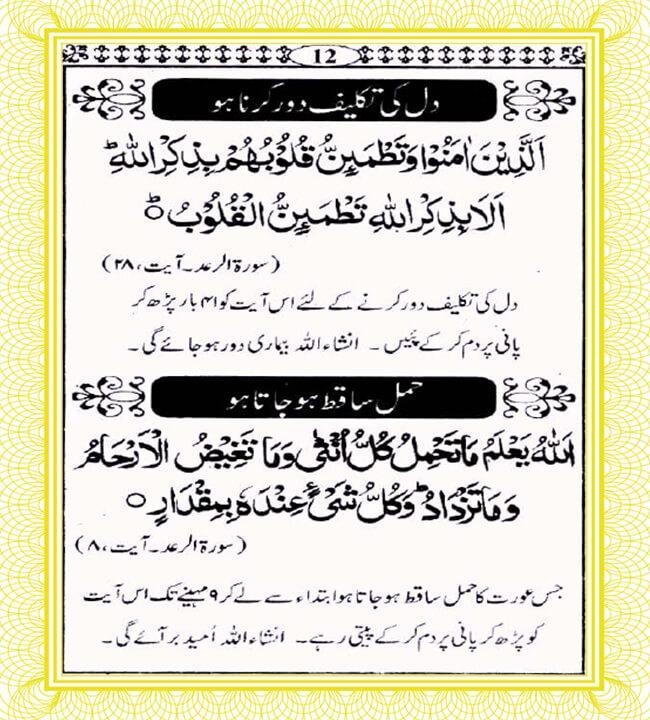 12
دل کی تکلیف دور کرنا ہو
اَلَّذِیْنَ اٰمَنُوْا وَتَطْمَئِنُّ قُلُوْبُهُمْ بِذِکْرِ اللّٰهِ ؕ
اَلَا بِذِکْرِ اللّٰهِ تَطْمَئِنُّ الْقُلُوْبُ ؕ
(سورۃ الرعد۔ آیت، ۲۸)
دل کی تکلیف دور کرنے کے لئے اس آیت کو ۴۱ بار پڑھ کر
پانی پر دم کر کے پئیں ۔ انشاء اللہ بیماری دور ہو جائے گی ۔
حمل ساقط ہو جاتا ہو
اَللّٰهُ یَعْلَمُ مَا تَحْمِلُ کُلُّ اُنْثٰی وَمَا تَغِیْضُ الْاَرْحَامُ
وَمَا تَزْدَادُ ؕ وَکُلُّ شَیْءٍ عِنْدَهٗ بِمِقْدَارٍ ○
(سورۃ الرعد۔ آیت، ۸)
جس عورت کا حمل ساقط ہو جاتا ہو ابتداء سے لے کر ۹ مہینے تک اس آیت
کو پڑھ کر پانی پر دم کر کے پیتی رہے ۔ انشاء اللہ اُمید بر آئے گی ۔